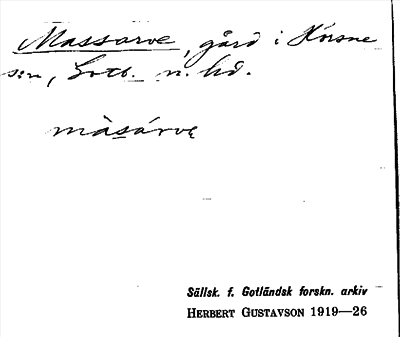 Massarve, gård i Hörsne
sn, Gotl. n. hd.
màsárvę
Sällsk. f. Gotländsk forskn. arkiv
HERBERT GUSTAVSON 1919—26